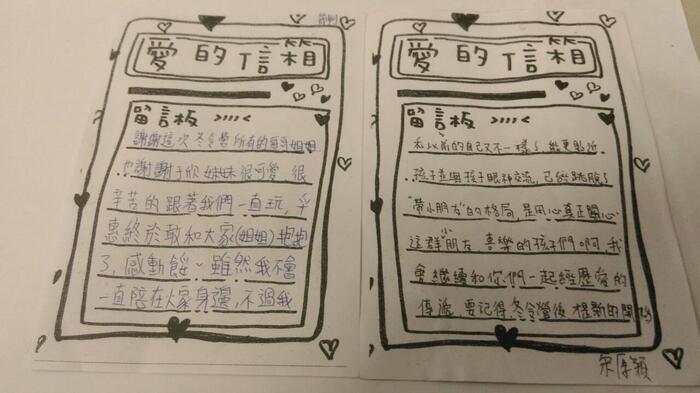 愛的信箱
留言板 >>>><
謝謝這次冬令營所有的哥哥姐姐
也謝謝于欣妹妹很可愛, 很
辛苦的跟著我們一直玩, 孚
惠終於敢和大家(姐姐)抱抱
了, 感動餒~雖然我不會
一直陪在大家身邊, 不過我
愛的信箱
留言板 >>>><
和以前的自己又不一樣了, 能更貼近
孩子並與孩子眼神交流, 已經跳脫了
"帶小朋友"的格局, 是用心真正關心
這群小朋友 喜樂的孩子們啊, 我
會繼續和你們一起經歷愛的
傳遞, 要記得, 冬令營後 是新的開始